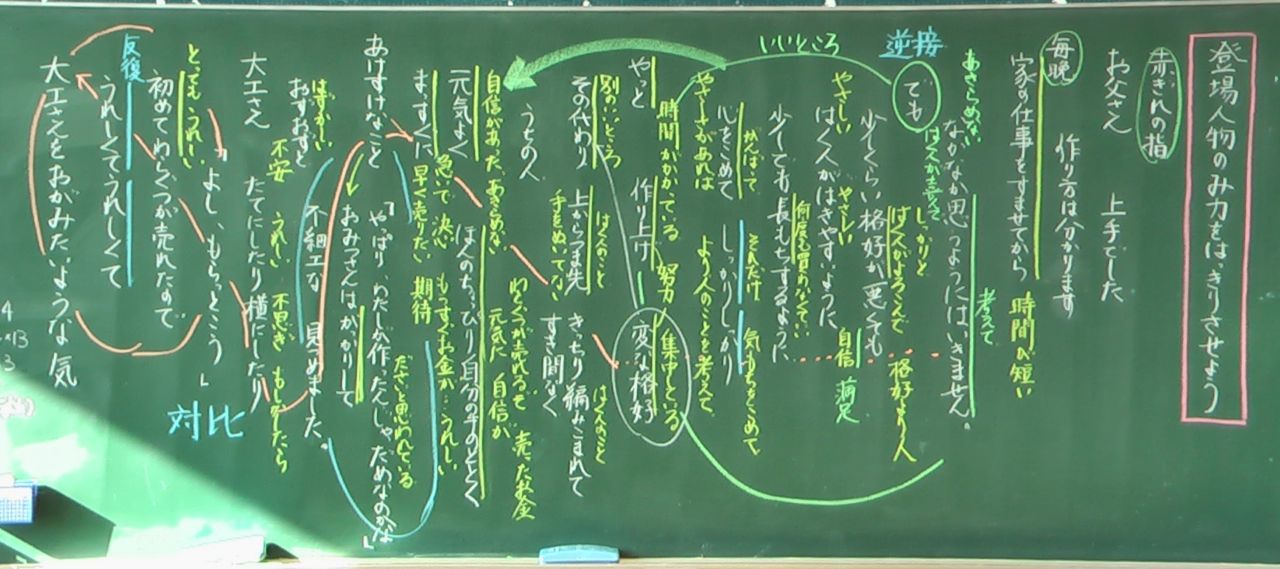 登場人物のみ力をはっきりさせよう
赤ぎれの指
お父さん　上手でした
作り方は分かります
毎晩
家の仕事をすませてから　時間が短い
考えて
なかなか思うようにはいきません。
あきらめない
はく人が喜んで
しっかりと
逆接
でも
はく人がよろこんで　格好より人
少しくらい格好が悪くても
やさしい　自信　満足
はく人がはきやすいように、
やさしい
何度も買わなくていい
少しでも長もちするように
いいところ
心をこめて　しっかりしっかり
がんばって　それだけ　気もちをこめて
やさしさがあれば　より人のことを考えて
時間がかかっている　努力　集中している
やっと　作り上げ　変な格好
別のいいところ　はく人のこと　はく人のこと
その代わり　上からつま先　きっちり編みこまれて
手をぬいてない　すき間なく
うちの人
自信があった、あきらめない　わらぐつが売れるぞ　元気だ　自信が　売ったお金
元気よく　ほんのちょっぴり自分の手のとどく
急いで　決心　もうすぐお金が…うれしい
ますずに　早く売りたい　期待
ださいと思われている
あけすけなこと　「やっぱり、わたしが作ったんじゃだめなのかな」
おみつさんはがっかりして
はずかしい
おずおずと　不細工な　見つめました。
不安　うれしい　不思ぎ　もしかしたら
大工さん　たてにしたり横にしたり
対比
「よし、もらっとこう」
とてもうれしい
初めてわらぐつが売れたので
反復
うれしくてうれしくて
大工さんをおがみたいような気